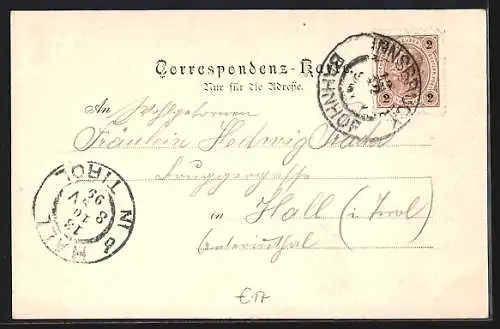 Correspondenz-Karte
Nur für die Adresse.
INNSBRUCK
BAHNHOF
2 2
An Wohlgeboren
Fräulein Hedwig
in Hall (i Tirol)
Unterinnthal
HALL
IN
TIROL
13
8 10 V
99
€17